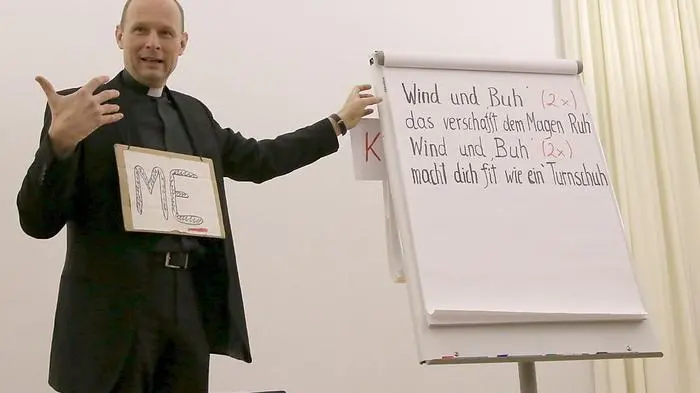 ME
K
Wind und 'Buh' (2x)
das verschafft dem Magen Ruh'
Wind und 'Buh' (2x)
macht dich fit wie ein Turnschuh